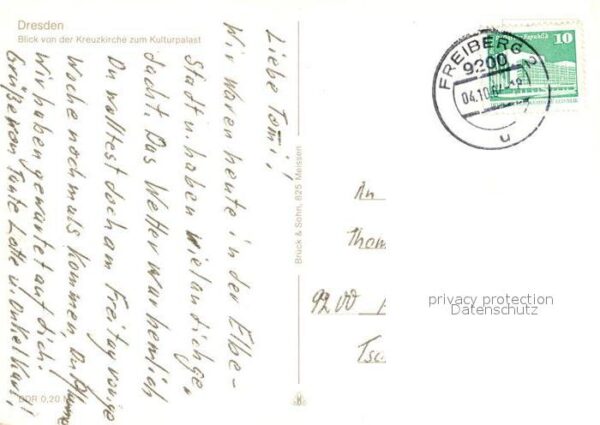 Dresden
Blick von der Kreuzkirche zum Kulturpalast
Liebe Tomi!
Wir waren heute in der Elbe-
Stadt u. haben viel an dich ge-
dacht. Das Wetter war herrlich
Du wolltest doch am Freitag vorige
Woche nochmals kommen, Du
Wir haben gewartet auf dich!
Grüße von Tante Lotte u. Onkel Karl!
DDR 0,20 M
Brück & Sohn, 825 Meissen
FREIBERG
9200
04.10
u
10
An
Thom
9200
Tsc
privacy protection
Datenschutz